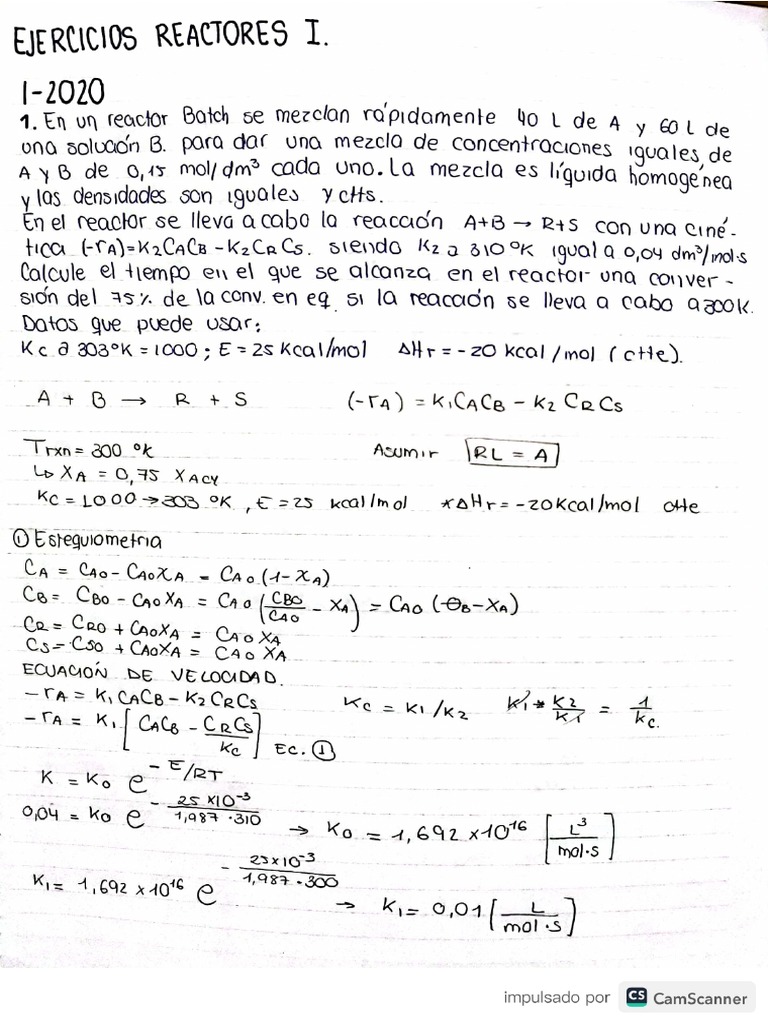 EJERCICIOS REACTORES I.
1-2020
1. En un reactor Batch se mezclan rápidamente 40 L de A y 60 L de
una solución B. para dar una mezcla de concentraciones iguales, de
A y B de 0,15 mol/dm³ cada uno. La mezcla es líquida homogénea
y las densidades son iguales y ctts.
En el reactor se lleva a cabo la reacción A+B → R+S con una ciné-
tica (-rA)=K2CACB-K2CRCS. siendo K2 a 310 °K igual a 0,04 dm³/mol·s
Calcule el tiempo en el que se alcanza en el reactor una conver-
sión del 75% de la conv. en eq. si la reacción se lleva a cabo a 300K.
Datos que puede usar:
Kc a 303°K = 1000 ; E = 25 Kcal/mol ΔHr = -20 kcal/mol (ctte).
A + B → R + S (-rA) = K1CACB - K2 CRCS
Trxn = 300 °K Asumir RL = A
↳ XA = 0,75 XAcy
KC = 1000 → 303 °K , E = 25 kcal/mol *ΔHr = -20Kcal/mol ctte
① Estequiometria
CA = CAO - CAOXA = CAO (1-XA)
CB = CBO - CAOXA = CAO (CBO/CAO - XA) = CAO (ΘB-XA)
CR = CRO + CAOXA = CAO XA
CS = CSO + CAOXA = CAO XA
ECUACIÓN DE VELOCIDAD.
-rA = K1CACB - K2CRCS KC = K1/K2 K1 * K2/K1 = 1/KC.
-rA = K1 [CACB - CRCS/KC] EC. ①
K = Ko e^(-E/RT)
0,04 = Ko e^(-25 x10⁻³/1,987 · 310) → Ko = 1,692 x10¹⁶ [L³/mol·s]
K1 = 1,692 x 10¹⁶ e^(-25x10⁻³/1,987 · 300) → K1 = 0,01 [L/mol·s]
impulsado por CS CamScanner